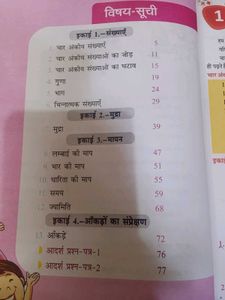 विषय-सूची
इकाई 1.–संख्याएँ
1. चार अंकीय संख्याएँ 5
2. चार अंकीय संख्याओं का जोड़ 11
3. चार अंकीय संख्याओं का घटाव 15
4. गुणा 19
5. भाग 24
6. भिन्नात्मक संख्याएँ 29
इकाई 2.–मुद्रा
मुद्रा 39
इकाई 3.–मापन
8. लम्बाई की माप 47
9. भार की माप 51
10. धारिता की माप 55
11. समय 59
12. ज्यामिति 68
इकाई 4.–आँकड़ों का संप्रेक्षण
13. आँकड़े 72
आदर्श प्रश्न-पत्र-1 76
आदर्श प्रश्न-पत्र-2 77
1